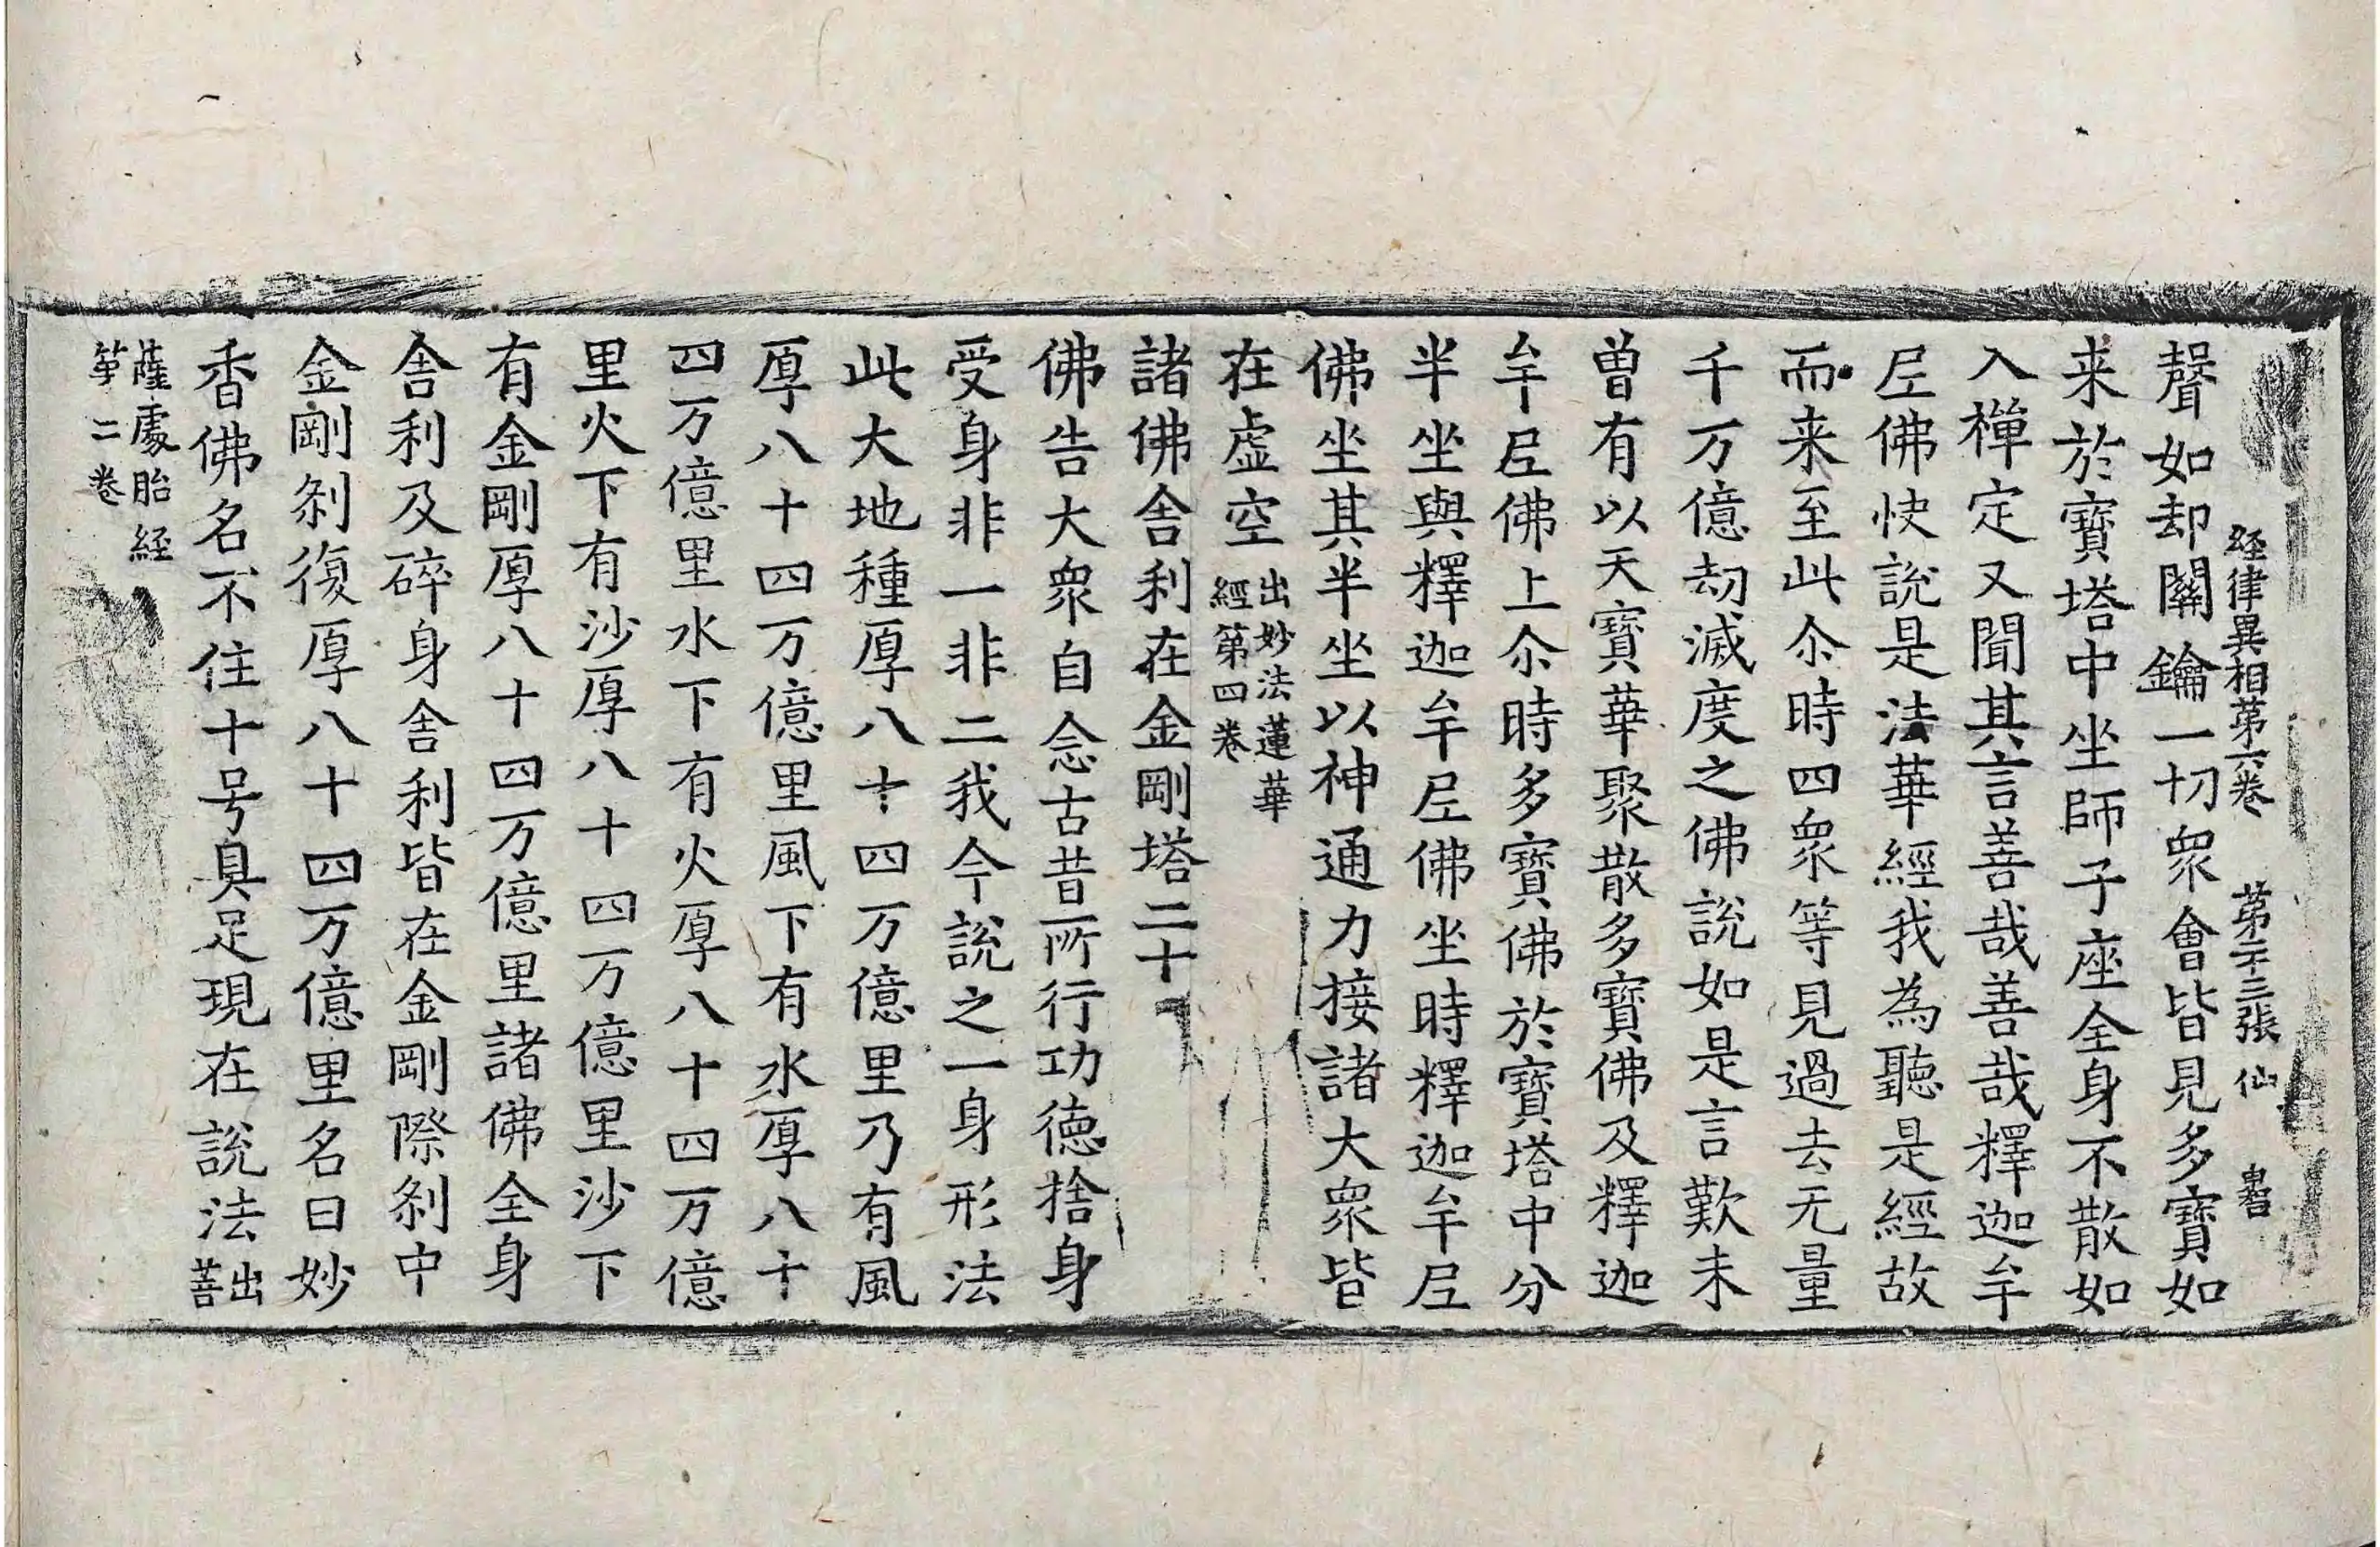 経律異相第六卷　第二十三張　仙
聲如却關鑰一切衆會皆見多寶如
来於寶塔中坐師子座全身不散如
入禪定又聞其言善哉善哉釋迦牟
尼佛快說是法華經我為聽是經故
而来至此尒時四衆等見過去无量
千万億劫滅度之佛說如是言歎未
曽有以天寶華聚散多寶佛及釋迦
牟尼佛上尒時多寶佛於寶塔中分
半坐與釋迦牟尼佛坐時釋迦牟尼
佛坐其半坐以神通力接諸大衆皆
在虛空出妙法蓮華經第四卷
諸佛舍利在金剛塔二十
佛告大衆自念古昔所行功德捨身
受身非一非二我今說之一身形法
此大地種厚八十四万億里乃有風
厚八十四万億里風下有水厚八十
四万億里水下有火厚八十四万億
里火下有沙厚八十四万億里沙下
有金剛厚八十四万億里諸佛全身
舍利及碎身舍利皆在金剛際刹中
金剛刹復厚八十四万億里名曰妙
香佛名不住十号具足現在說法出菩
薩處胎経
第二卷